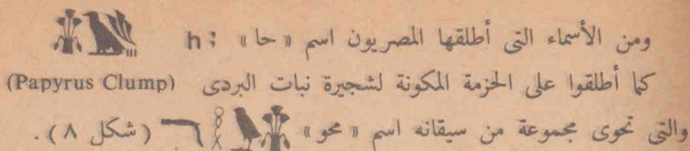 ومن الأسماء التى أطلقها المصريون اسم « حا » ḥꜣ 𓇉𓄿
كما أطلقوا على الحزمة المكونة لشجيرة نبات البردى (Papyrus Clump)
والتى تحوى مجموعة من سيقانه اسم « محو » (شكل ٨) .